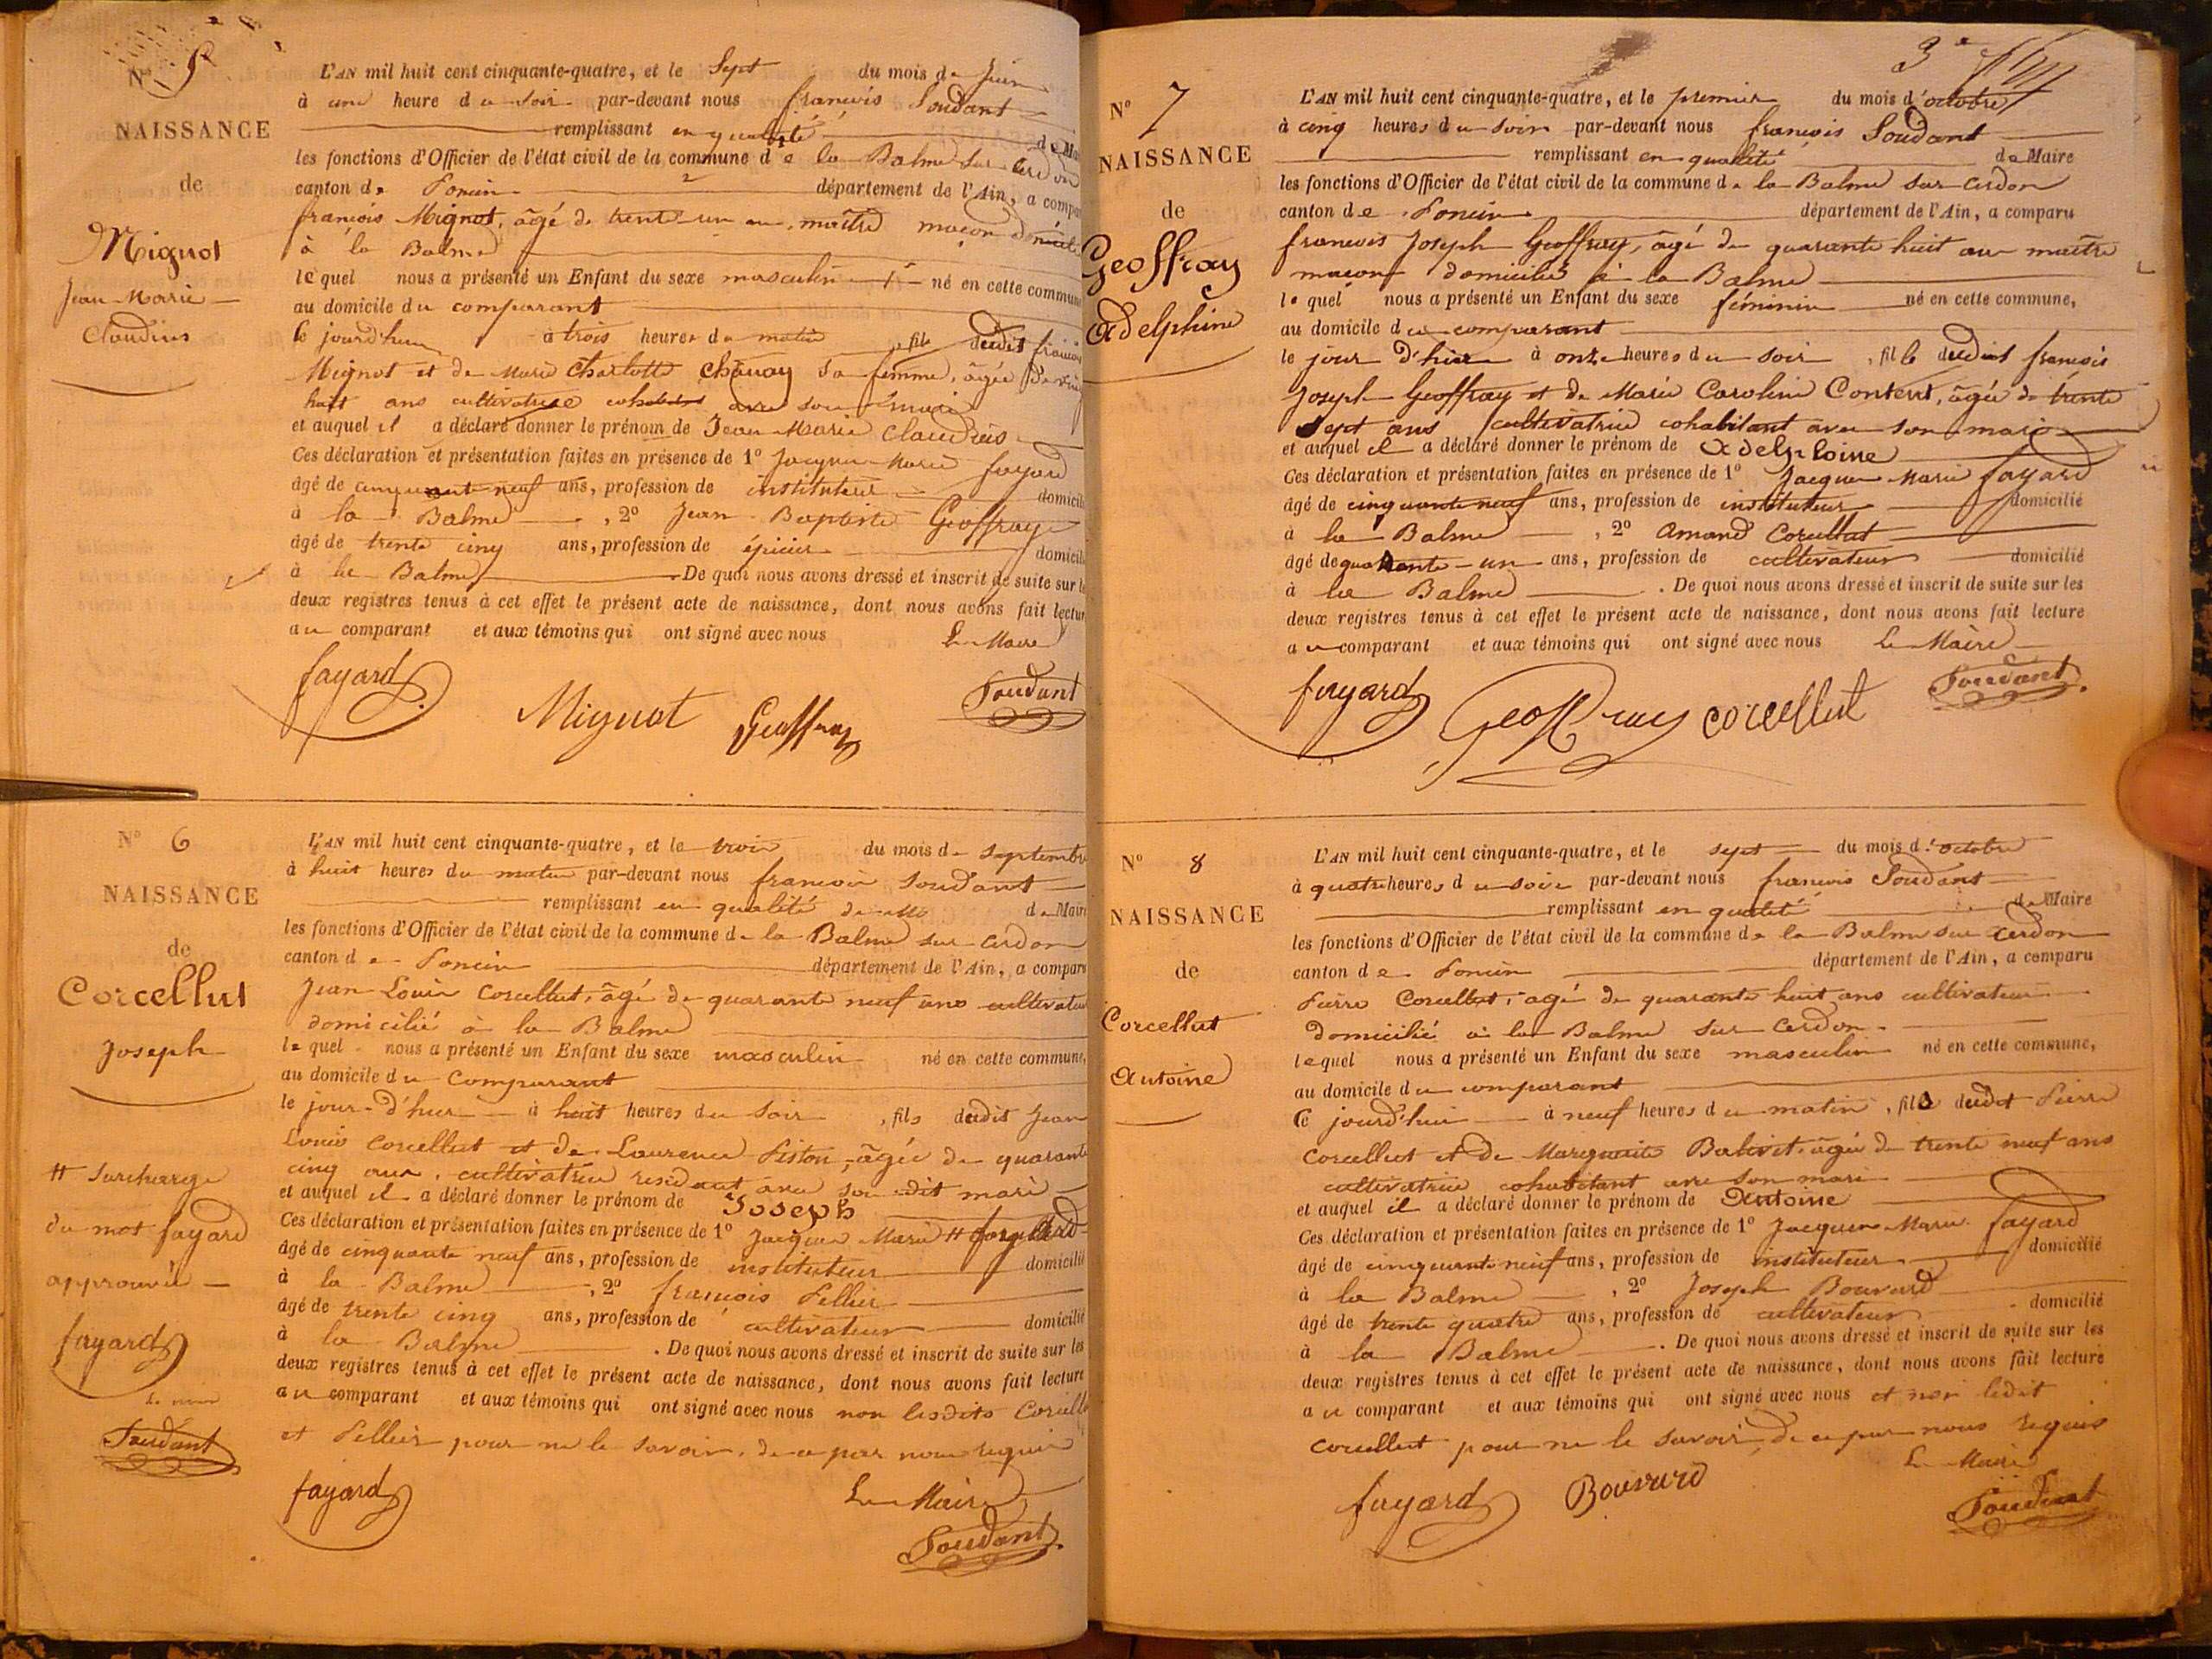 N° 5
NAISSANCE
de
Mignot
Jean Marie
Claudius
L'AN mil huit cent cinquante-quatre, et le Sept du mois de Juin
à une heure du soir par-devant nous françois Soudant
remplissant en qualité de Mai
les fonctions d'Officier de l'état civil de la commune de la Balme sur Cerdon
canton de Poncin département de l'Ain, a compa
françois Mignot, âgé de trente un an, maître maçon domicilié
à la Balme
lequel nous a présenté un Enfant du sexe masculin né en cette commune
au domicile du comparant
Ce jourd'hui à trois heures du matin, fils dudit françois
Mignot et de Marie Charlotte Chanay sa femme, âgée de vingt
huit ans cultivatrice cohabitant avec son mari
et auquel il a déclaré donner le prénom de Jean Marie Claudius
Ces déclaration et présentation faites en présence de 1° Jacques Marie fayard
âgé de cinquante neuf ans, profession de instituteur domicili
à la Balme, 2° Jean Baptiste Geoffray
âgé de trente cinq ans, profession de épicier domicili
à la Balme. De quoi nous avons dressé et inscrit de suite sur le
deux registres tenus à cet effet le présent acte de naissance, dont nous avons fait lectur
au comparant et aux témoins qui ont signé avec nous Le Maire
fayard Mignot Geoffray Soudant
N° 6
NAISSANCE
de
Corcellut
Joseph
# Surcharge
du mot fayard
approuvée
fayard
Le maire
Soudant
L'AN mil huit cent cinquante-quatre, et le trois du mois de Septembre
à huit heures du matin par-devant nous françois Soudant
remplissant en qualité de Maire
les fonctions d'Officier de l'état civil de la commune de la Balme sur Cerdon
canton de Poncin département de l'Ain, a comparu
Jean Louis Corcellut, âgé de quarante neuf ans cultivateur
domicilié à la Balme
lequel nous a présenté un Enfant du sexe masculin né en cette commune,
au domicile du Comparant
le jour d'hier à huit heures du soir, fils dudit Jean
Louis Corcellut et de Laurence Piston, âgée de quarante
cinq ans, cultivatrice residant avec son dit mari
et auquel il a déclaré donner le prénom de Joseph
Ces déclaration et présentation faites en présence de 1° Jacques Marie # fayard
âgé de cinquante neuf ans, profession de instituteur domicilié
à la Balme, 2° françois Pellier
âgé de trente cinq ans, profession de cultivateur domicilié
à la Balme. De quoi nous avons dressé et inscrit de suite sur les
deux registres tenus à cet effet le présent acte de naissance, dont nous avons fait lecture
au comparant et aux témoins qui ont signé avec nous non lesdits Corcellut
et Pellier pour ne le savoir, de ce par nous requis
fayard Le Maire
Soudant
3e
N° 7
NAISSANCE
de
Geoffray
Adelphine
L'AN mil huit cent cinquante-quatre, et le premier du mois d'octobre
à cinq heures du soir par-devant nous françois Soudant
remplissant en qualité de Maire
les fonctions d'Officier de l'état civil de la commune de la Balme sur Cerdon
canton de Poncin département de l'Ain, a comparu
françois Joseph Geoffray, âgé de quarante huit ans maître
maçon domicilié à la Balme
lequel nous a présenté un Enfant du sexe féminin né en cette commune,
au domicile du comparant
le jour d'hier à onze heures du soir, fille dudit françois
Joseph Geoffray et de Marie Caroline Content, âgée de trente
Sept ans cultivatrice cohabitant avec son mari
et auquel il a déclaré donner le prénom de Adelphine
Ces déclaration et présentation faites en présence de 1° Jacques Marie fayard
âgé de cinquante neuf ans, profession de instituteur domicilié
à la Balme, 2° Amand Corcellut
âgé de quarante-un ans, profession de cultivateur domicilié
à la Balme. De quoi nous avons dressé et inscrit de suite sur les
deux registres tenus à cet effet le présent acte de naissance, dont nous avons fait lecture
au comparant et aux témoins qui ont signé avec nous Le Maire
fayard Geoffray corcellut Soudant
N° 8
NAISSANCE
de
Corcellut
Antoine
L'AN mil huit cent cinquante-quatre, et le sept du mois d'octobre
à quatre heures du soir par-devant nous françois Soudant
remplissant en qualité de Maire
les fonctions d'Officier de l'état civil de la commune de la Balme sur Cerdon
canton de Poncin département de l'Ain, a comparu
Pierre Corcellut, agé de quarante huit ans cultivateur
domicilié à la Balme sur Cerdon
lequel nous a présenté un Enfant du sexe masculin né en cette commune,
au domicile du comparant
Ce jourd'hui à neuf heures du matin, fils dudit Pierre
Corcellut et de Marguerite Balivet, âgée de trente neuf ans
cultivatrice cohabitant avec son mari
et auquel il a déclaré donner le prénom de Antoine
Ces déclaration et présentation faites en présence de 1° Jacques Marie fayard
âgé de cinquante neuf ans, profession de instituteur domicilié
à la Balme, 2° Joseph Bouvard
âgé de trente quatre ans, profession de cultivateur domicilié
à la Balme. De quoi nous avons dressé et inscrit de suite sur les
deux registres tenus à cet effet le présent acte de naissance, dont nous avons fait lecture
au comparant et aux témoins qui ont signé avec nous et non ledit
Corcellut pour ne le savoir, de ce par nous requis
Le Maire
fayard Bouvard Soudant